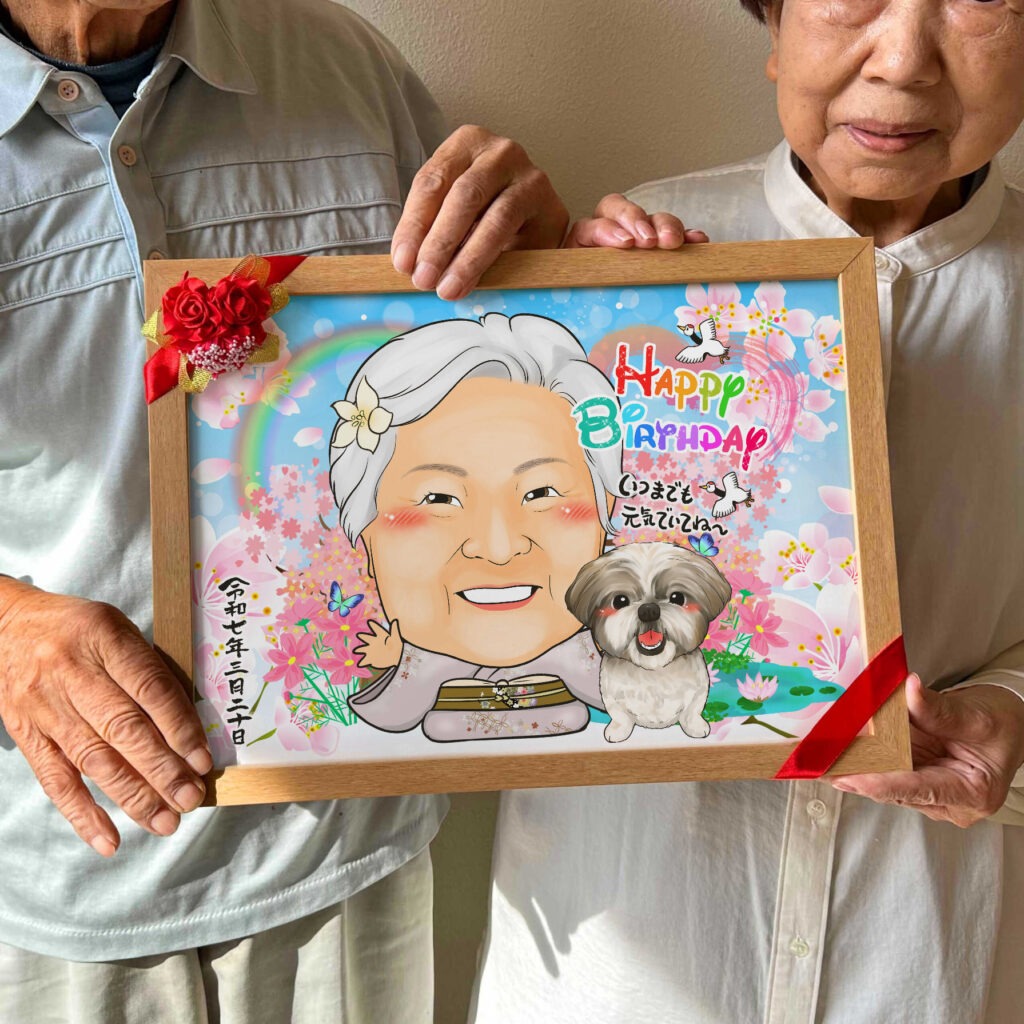 HAPPY
BIRTHDAY
いつまでも
元気でいてね〜
令和七年三月二十日